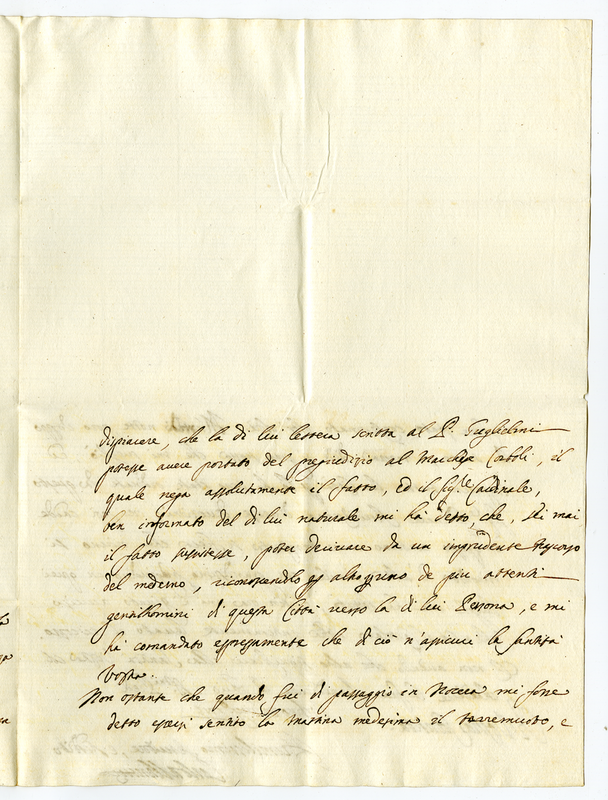 dispiacere, che la di lui lettera scritta al P. Guglielmi
potesse avere portato del pregiudizio al Marchese, il
quale nega assolutamente il fatto, ed il Sig.re Cardinale,
ben informato del di lui naturale mi hà detto, che, se mai
il fatto sussistesse, poter derivare da un imprudente trasporto
del medemo, riconoscendolo per altro uno de più attenti
gentilhomini di questa Città verso la di lui Persona, e mi
hà comandato espressamente che di ciò n'assicuri la Santità
Vostra.
Non ostante che quando fui di passaggio in Nocera mi fosse
detto essersi sentito la mattina medesima il terremuoto, e